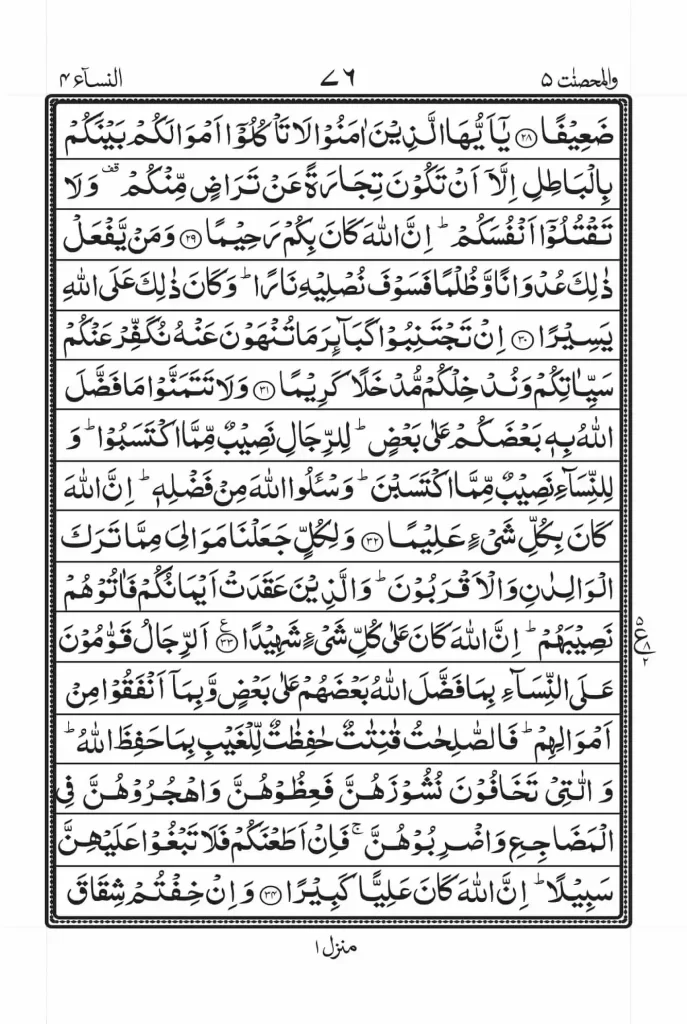 والمحصنت ۵ ۷۶ النسآء ۴
ضَعِيۡفًا ﴿۲۸﴾ يٰۤاَيُّهَا الَّذِيۡنَ اٰمَنُوۡا لَا تَاۡكُلُوۡۤا اَمۡوَالَـكُمۡ بَيۡنَكُمۡ
بِالۡبَاطِلِ اِلَّاۤ اَنۡ تَكُوۡنَ تِجَارَةً عَنۡ تَرَاضٍ مِّنۡكُمۡ ۟ وَلَا
تَقۡتُلُوۡۤا اَنۡـفُسَكُمۡ‌ؕ اِنَّ اللّٰهَ كَانَ بِكُمۡ رَحِيۡمًا ﴿۲۹﴾ وَمَنۡ يَّفۡعَلۡ
ذٰلِكَ عُدۡوَانًا وَّظُلۡمًا فَسَوۡفَ نُصۡلِيۡهِ نَارًا‌ؕ وَكَانَ ذٰلِكَ عَلَى اللّٰهِ
يَسِيۡرًا ﴿۳۰﴾ اِنۡ تَجۡتَنِبُوۡا كَبَآٮِٕرَ مَا تُنۡهَوۡنَ عَنۡهُ نُكَفِّرۡ عَنۡكُمۡ
سَيِّاٰتِكُمۡ وَنُدۡخِلۡـكُمۡ مُّدۡخَلًا كَرِيۡمًا ﴿۳۱﴾ وَلَا تَتَمَنَّوۡا مَا فَضَّلَ
اللّٰهُ بِهٖ بَعۡضَكُمۡ عَلٰى بَعۡضٍ‌ؕ لِلرِّجَالِ نَصِيۡبٌ مِّمَّا اكۡتَسَبُوۡا‌ؕ وَ
لِلنِّسَآءِ نَصِيۡبٌ مِّمَّا اكۡتَسَبۡنَ‌ؕ وَسۡئَـلُوا اللّٰهَ مِنۡ فَضۡلِهٖ‌ؕ اِنَّ اللّٰهَ
كَانَ بِكُلِّ شَىۡءٍ عَلِيۡمًا ﴿۳۲﴾ وَلِكُلٍّ جَعَلۡنَا مَوَالِىَ مِمَّا تَرَكَ
الۡوَالِدٰنِ وَالۡاَقۡرَبُوۡنَ‌ؕ وَالَّذِيۡنَ عَقَدَتۡ اَيۡمَانُكُمۡ فَاٰ تُوۡهُمۡ
نَصِيۡبَهُمۡ‌ؕ اِنَّ اللّٰهَ كَانَ عَلٰى كُلِّ شَىۡءٍ شَهِيۡدًا ﴿۳۳﴾ اَلرِّجَالُ قَوّٰمُوۡنَ
عَلَى النِّسَآءِ بِمَا فَضَّلَ اللّٰهُ بَعۡضَهُمۡ عَلٰى بَعۡضٍ وَّبِمَاۤ اَنۡفَقُوۡا مِنۡ
اَمۡوَالِهِمۡ‌ؕ فَالصّٰلِحٰتُ قٰنِتٰتٌ حٰفِظٰتٌ لِّلۡغَيۡبِ بِمَا حَفِظَ اللّٰهُ‌ؕ
وَ الّٰتِىۡ تَخَافُوۡنَ نُشُوۡزَهُنَّ فَعِظُوۡهُنَّ وَاهۡجُرُوۡهُنَّ فِى
الۡمَضَاجِعِ وَاضۡرِبُوۡهُنَّ‌ۚ فَاِنۡ اَطَعۡنَكُمۡ فَلَا تَبۡغُوۡا عَلَيۡهِنَّ
سَبِيۡلًا‌ؕ اِنَّ اللّٰهَ كَانَ عَلِيًّا كَبِيۡرًا ﴿۳۴﴾ وَاِنۡ خِفۡتُمۡ شِقَاقَ
منزل ۱